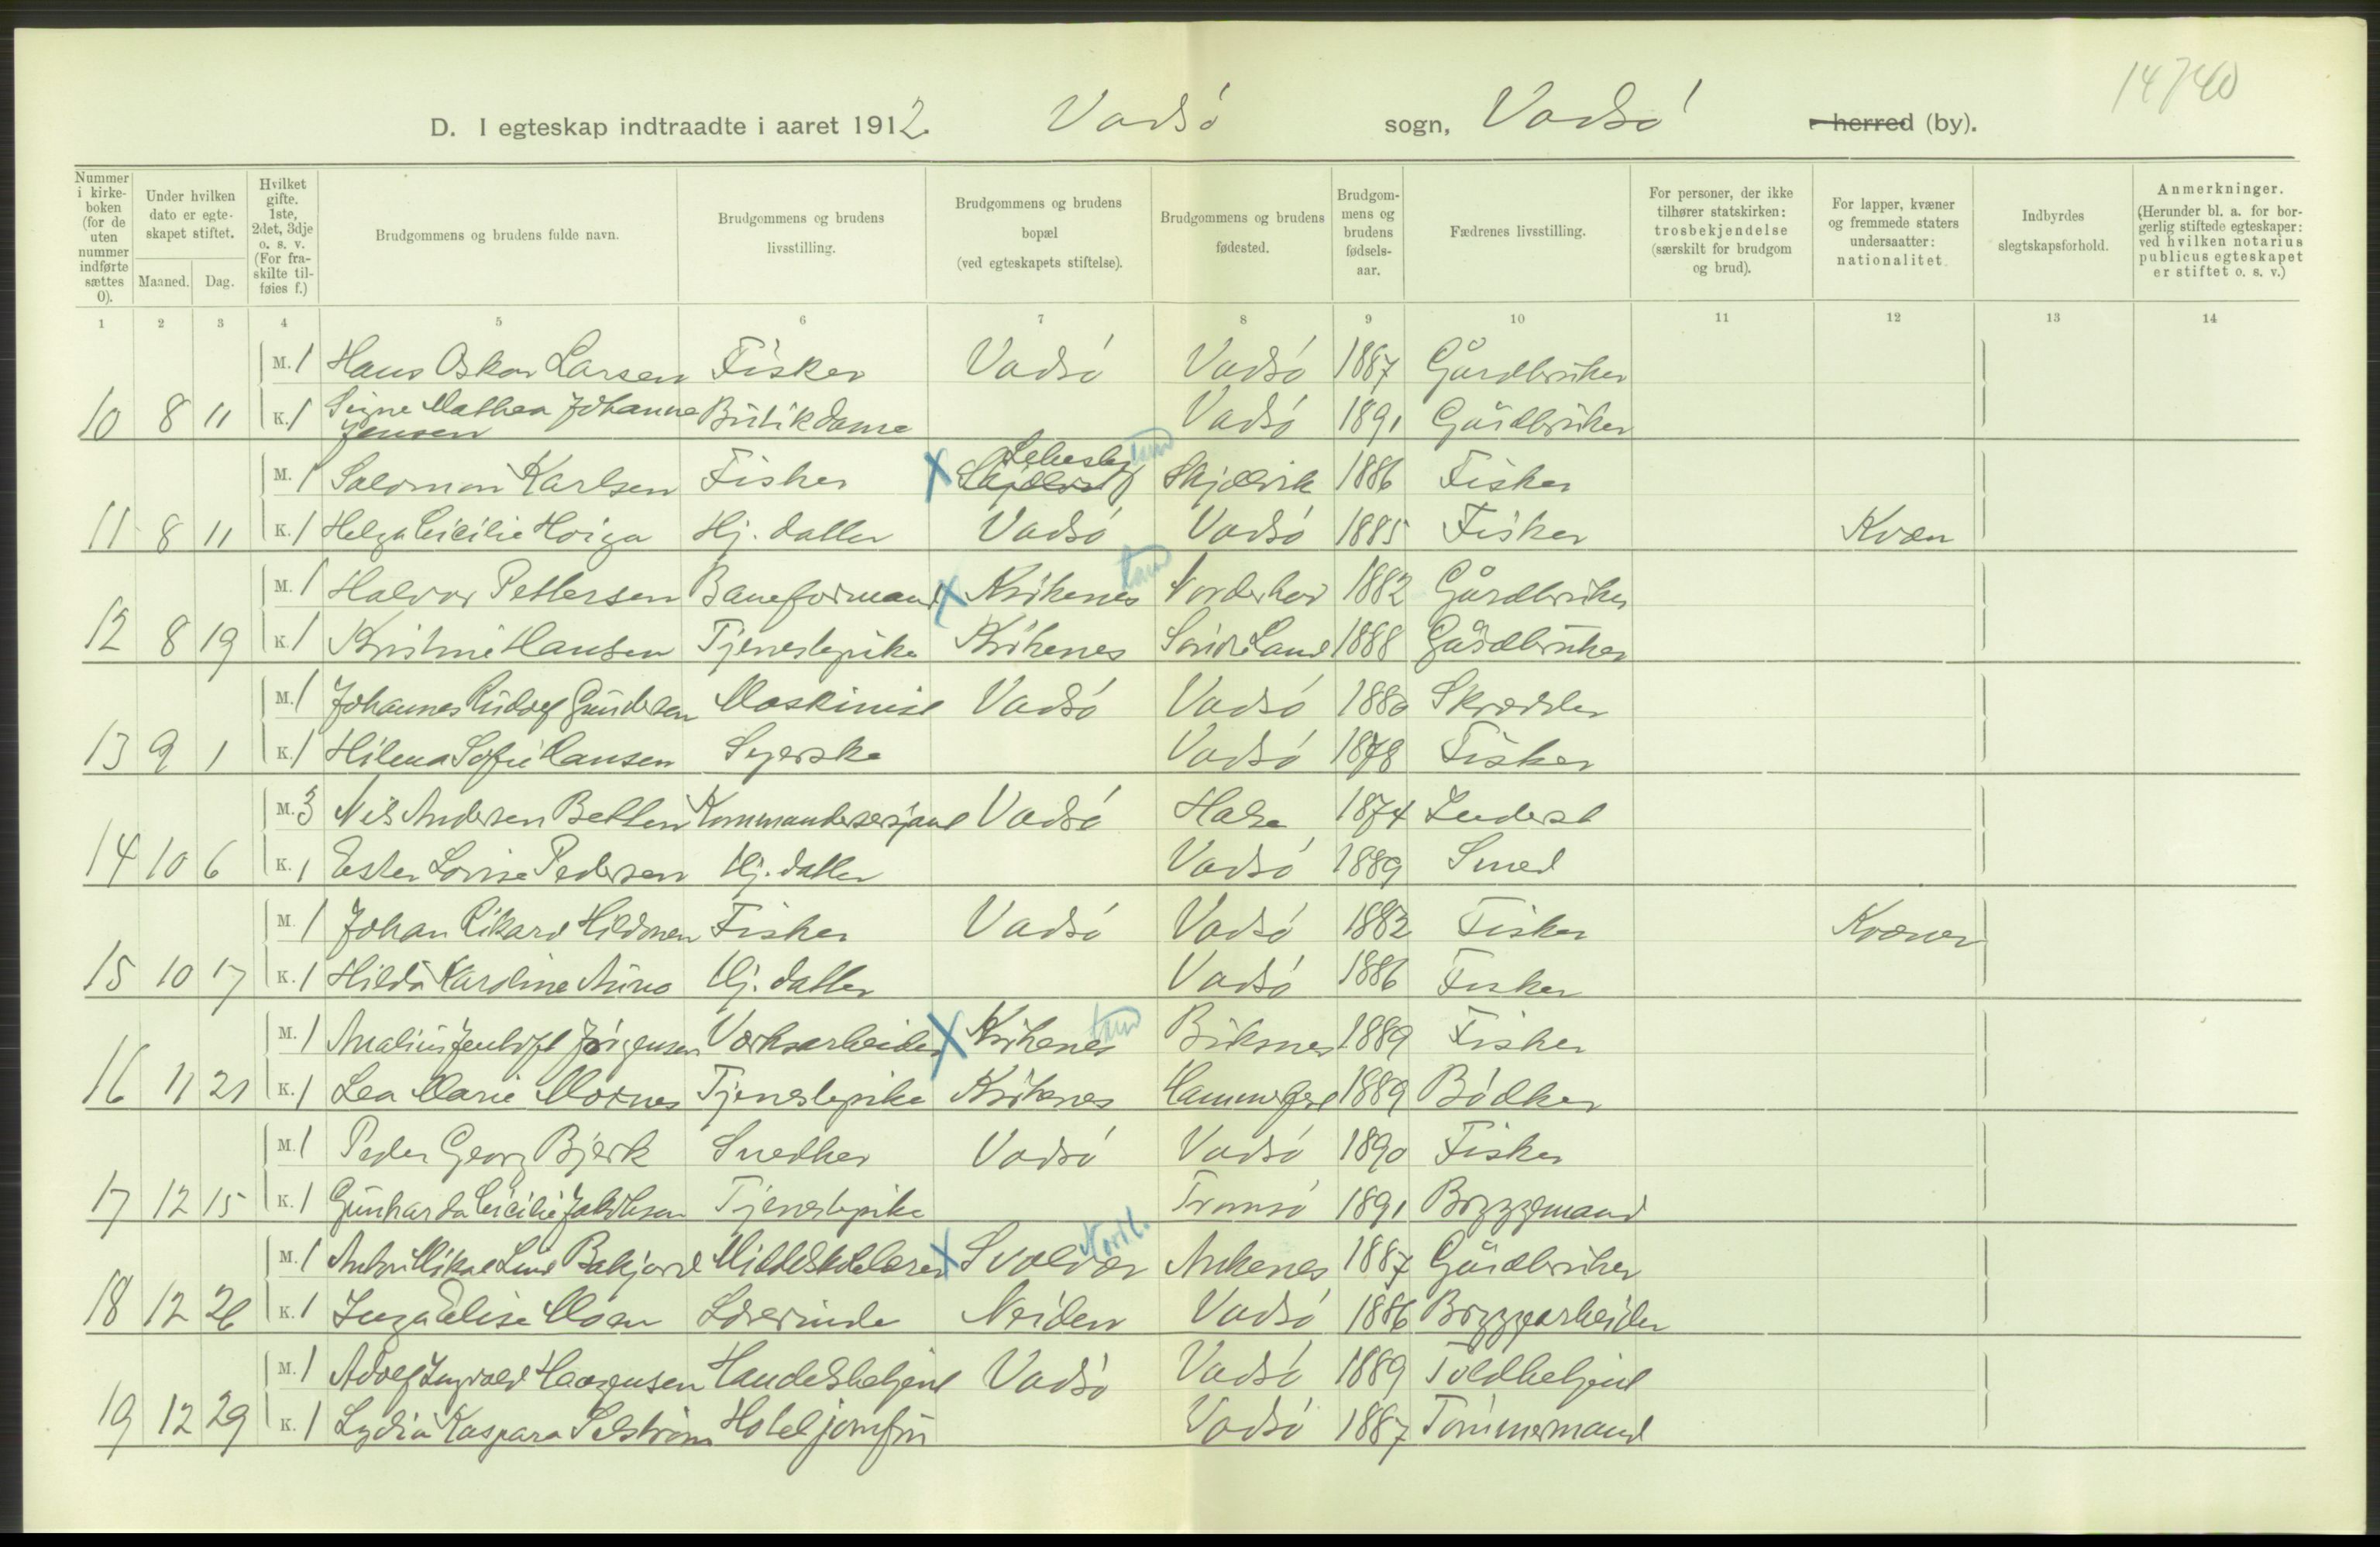 14740
D. I egteskap indtraadte i aaret 1912. Vadsö sogn, Vadsö herred (by).
Nummer i kirkeboken (for de uten nummer indførte sættes 0).
Under hvilken dato er egteskapet stiftet.
Maaned. Dag.
Hvilket gifte. 1ste, 2det, 3dje o. s. v. (For fraskilte tilføies f.)
Brudgommens og brudens fulde navn.
Brudgommens og brudens livsstilling.
Brudgommens og brudens bopæl (ved egteskapets stiftelse).
Brudgommens og brudens fødested.
Brudgommens og brudens fødselsaar.
Fædrenes livsstilling.
For personer, der ikke tilhører statskirken: trosbekjendelse (særskilt for brudgom og brud).
For lapper, kvæner og fremmede staters undersaatter: nationalitet.
Indbyrdes slegtskapsforhold.
Anmerkninger. (Herunder bl. a. for borgerlig stiftede egteskaper: ved hvilken notarius publicus egteskapet er stiftet o. s. v.)
1 2 3 4 5 6 7 8 9 10 11 12 13 14
M. 1 Hans Oskar Larsen Fisker Vadsö Vadsö 1887 Gårdbruker
10 8 11 K. 1 Signe Mathea Johanne Jensen Butikdame Vadsö 1891 Gårdbruker
M. 1 Salomon Karlsen Fisker X Lebesby Skjælvik 1886 Fisker
11 8 11 K. 1 Helga Cicilie Hoiga Hj. datter Vadsö Vadsö 1885 Fisker Kvæn
M. 1 Halvor Pettersen Baneformand X Kirkenes Norderhov 1882 Gårdbruker
12 8 19 K. 1 Kristine Hansen Tjenestepike Kirkenes Söndre Land 1888 Gårdbruker
M. 1 Johannes Rudolf Gundersen Maskinist Vadsö Vadsö 1880 Skrædder
13 9 1 K. 1 Hilma Sofie Hansen Syerske Vadsö 1878 Fisker
M. 3 Nils Andersen Betten Kommandersersjant Vadsö Halsa 1874
14 10 6 K. 1 Ester Lovise Pedersen Hj. datter Vadsö 1889 Smed
M. 1 Johan Rikard Hildonen Fisker Vadsö Vadsö 1882 Fisker Kvæner
15 10 17 K. 1 Hilda Karoline Hj. datter Vadsö 1886 Fisker
M. 1 Jentoft Jörgensen Verksarbeider X Kirkenes 1889 Fisker
16 11 21 K. 1 Lea Marie Mornes Tjenestepike Kirkenes Hammerfest 1889 Bödker
M. 1 Peder Georg Bjerk Snedker Vadsö Vadsö 1890 Fisker
17 12 15 K. 1 Gunharda Cicilie Jakobsen Tjenestepike Tromsö 1891 Bryggemand
M. 1 Anton Mikal Lind Bakjord Middelskolelærer X Svolvær Ankenes 1887 Gårdbruker
18 12 26 K. 1 Inga Elise Moen Lærerinde Neiden Vadsö 1886 Bryggearbeider
M. 1 Adolf Ingvald Haagensen Handelsbetjent Vadsö Vadsö 1889 Toldbetjent
19 12 29 K. 1 Lydia Kaspara Selström Hoteljomfru Vadsö 1887 Tömmermand